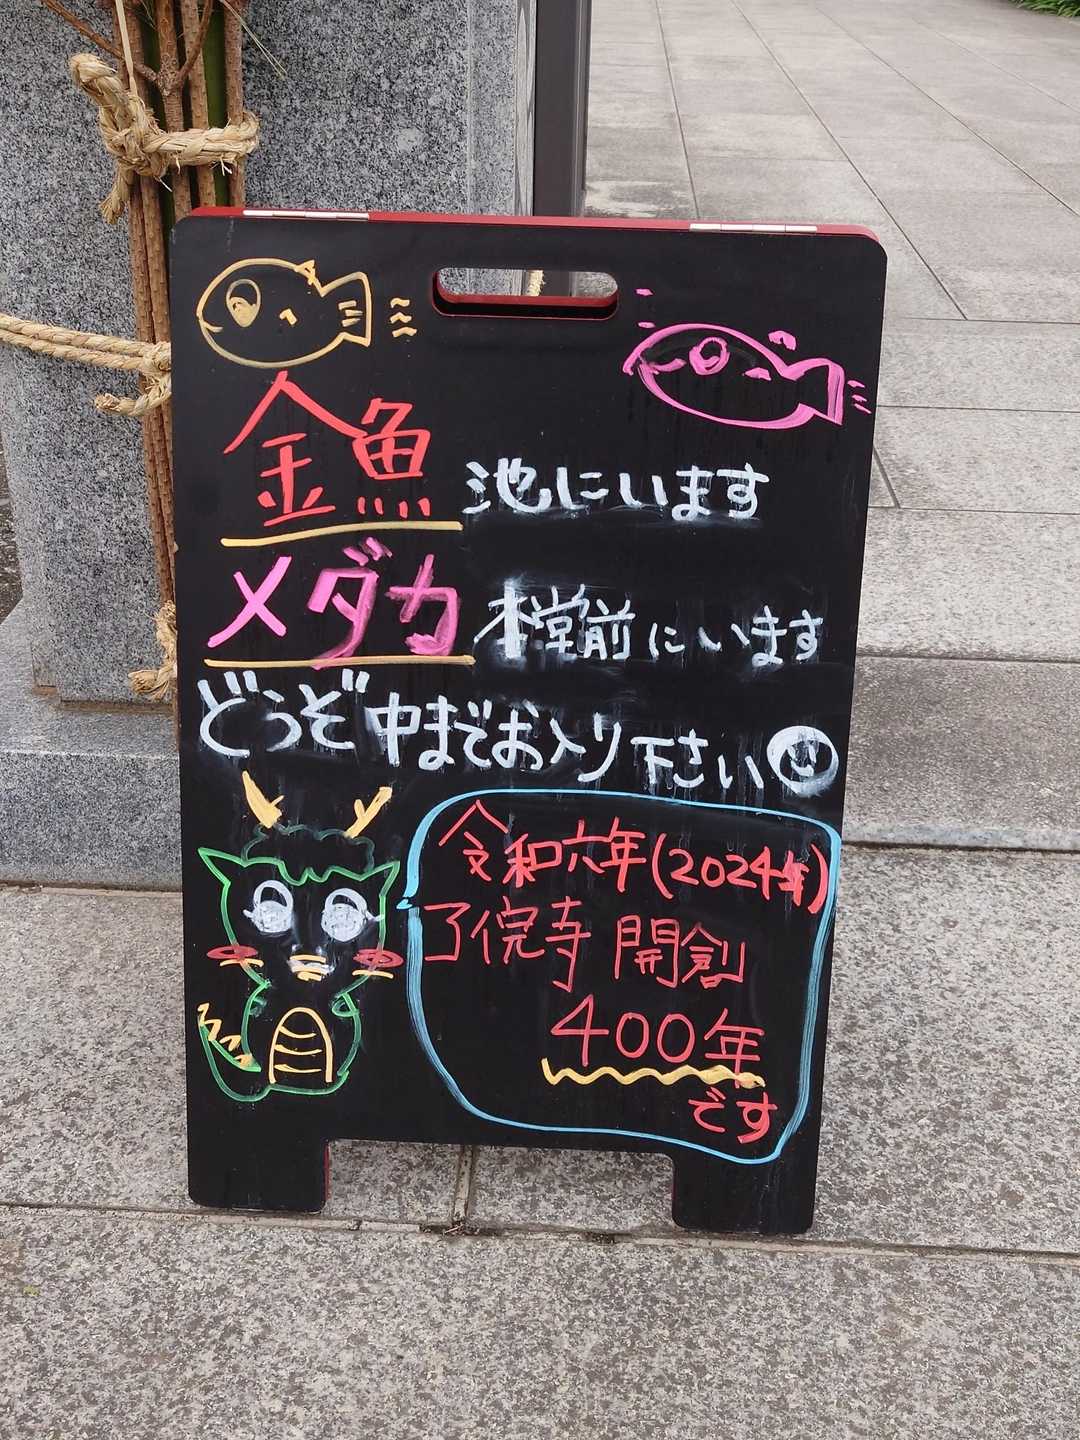 金魚 池にいます
メダカ 本堂前にいます
どうぞ中までお入り下さい
令和六年(2024年)
了俒寺 開創
400年
です